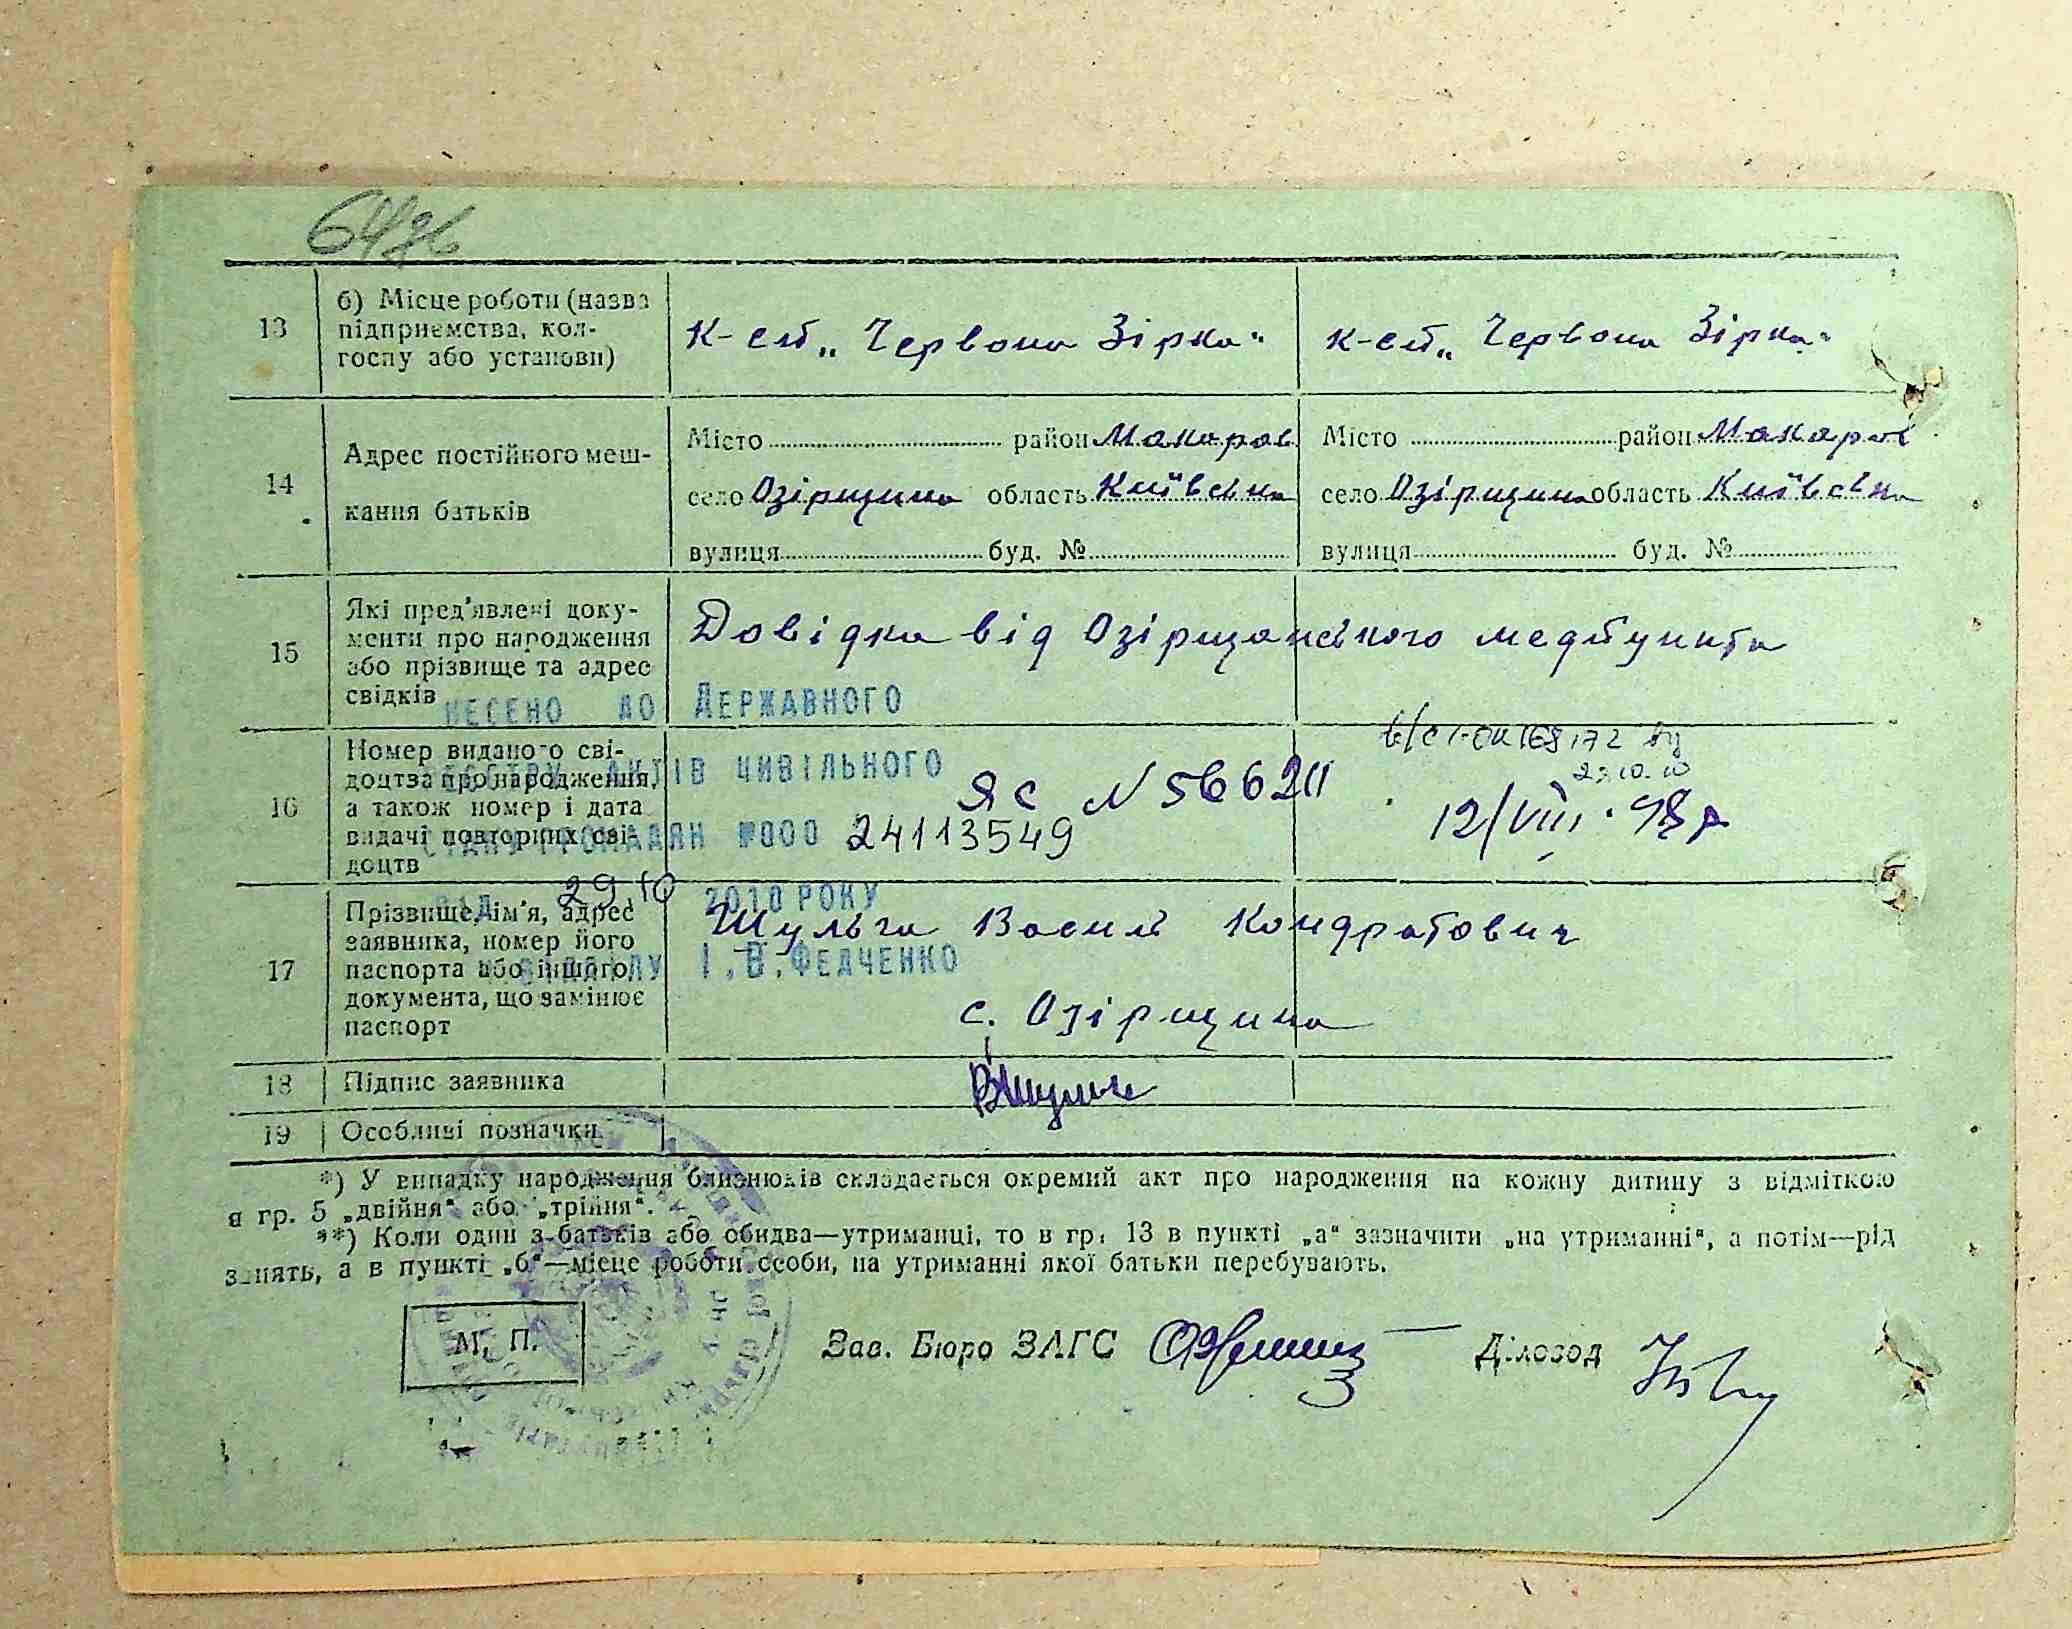 13
б) Місце роботи (назва
підприємства, кол-
госпу або установи)
К-сп „Червона Зірка"
К-сп „Червона Зірка"
14
Адрес постійного меш-
кання батьків
Місто район Макаров
село Озірщина область Київська
вулиця буд. №
Місто район Макаров
село Озірщина область Київська
вулиця буд. №
15
Які пред'явлені доку-
менти про народження
або прізвище та адрес
свідків
Довідка від Озірщанського медпункта
ВНЕСЕНО ДО ДЕРЖАВНОГО
РЕЄСТРУ АКТІВ ЦИВІЛЬНОГО
СТАНУ ГРОМАДЯН №000 24113549
ВІД 29 10 2010 РОКУ
І.В.ФЕДЧЕНКО
16
Номер виданого сві-
доцтва про народження,
а також номер і дата
видачі повторних сві-
доцтв
ЯС N 566211
29.10.10
12/VIII.
17
Прізвище, ім'я, адрес
заявника, номер його
паспорта або іншого
документа, що замінює
паспорт
Шульга Василь Кондратович
с. Озірщина
18
Підпис заявника
19
Особливі позначки
*) У випадку народження близнюків складається окремий акт про народження на кожну дитину з відміткою
в гр. 5 „двійня" або „трійня".
**) Коли один з батьків або обидва—утриманці, то в гр. 13 в пункті „а" зазначити „на утриманні", а потім—рід
занять, а в пункті „б"—місце роботи особи, на утриманні якої батьки перебувають.
М. П.
Зав. Бюро ЗАГС
Діловод